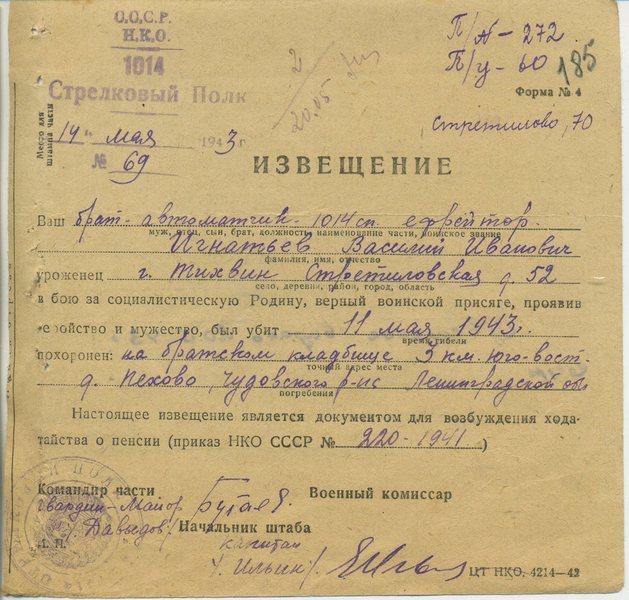 С.С.С.Р.
Н.К.О.
1014
Стрелковый Полк
П/N - 272
П/у - 60
185
Форма № 4
Место для
штампа части
14 " мая 1943 г.
№ 69
2
20.05
Стретилово, 70
ИЗВЕЩЕНИЕ
Ваш брат - автоматчик - 1014 сп ефрейтор
муж, отец, сын, брат, должность, наименование части, воинское звание
Игнатьев Василий Иванович
фамилия, имя, отчество
уроженец г. Тихвин Стретиловская д. 52
село, деревня, район, город, область
в бою за социалистическую Родину, верный воинской присяге, проявив
геройство и мужество, был убит 11 мая 1943 г.
время гибели
похоронен: на братском кладбище 3 км. юго-вост-
точный адрес места
д. Пехово, Чудовского р-на Ленинградской обл
погребения
Настоящее извещение является документом для возбуждения хода-
тайства о пенсии (приказ НКО СССР № 220-1941)
Командир части
гвардии - Майор
/Давыдов/
М. П.
Военный комиссар
Начальник штаба
капитан
/Ильин/
ЦТ НКО. 4214—42